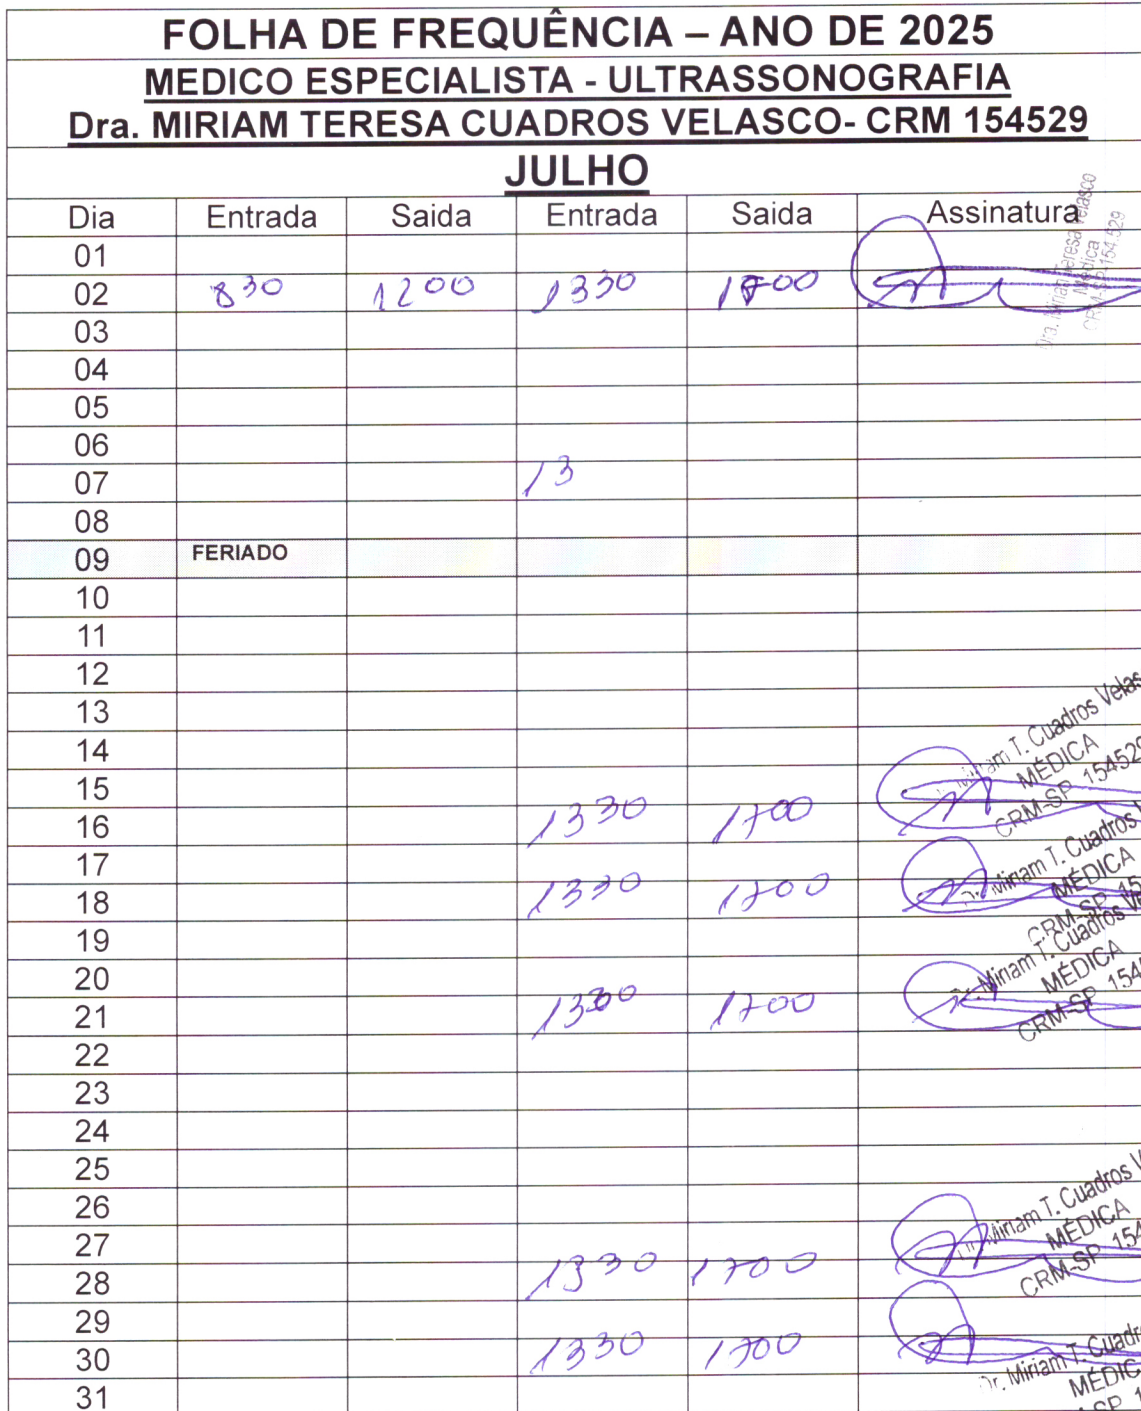 FOLHA DE FREQUÊNCIA – ANO DE 2025
MEDICO ESPECIALISTA - ULTRASSONOGRAFIA
Dra. MIRIAM TERESA CUADROS VELASCO- CRM 154529
JULHO
Dia Entrada Saida Entrada Saida Assinatura
01
02 830 1200 1330 1700
Dra. Miriam Teresa Velasco
Médica
CRM-SP 154.529
03
04
05
06
07 13
08
09 FERIADO
10
11
12
13
14
15
Miriam T. Cuadros Velas
MÉDICA
CRM-SP 154529
16 1330 1700
17
Dr. Miriam T. Cuadros V
MÉDICA
CRM-SP 15
18 1330 1700
19
20
Dr. Miriam T. Cuadros Ve
MÉDICA
CRM-SP 154
21 1330 1700
22
23
24
25
26
27
Dr. Miriam T. Cuadros V
MÉDICA
CRM-SP 154
28 1330 1700
29
30 1330 1700
Dr. Miriam T. Cuadro
MÉDIC
SP 1
31